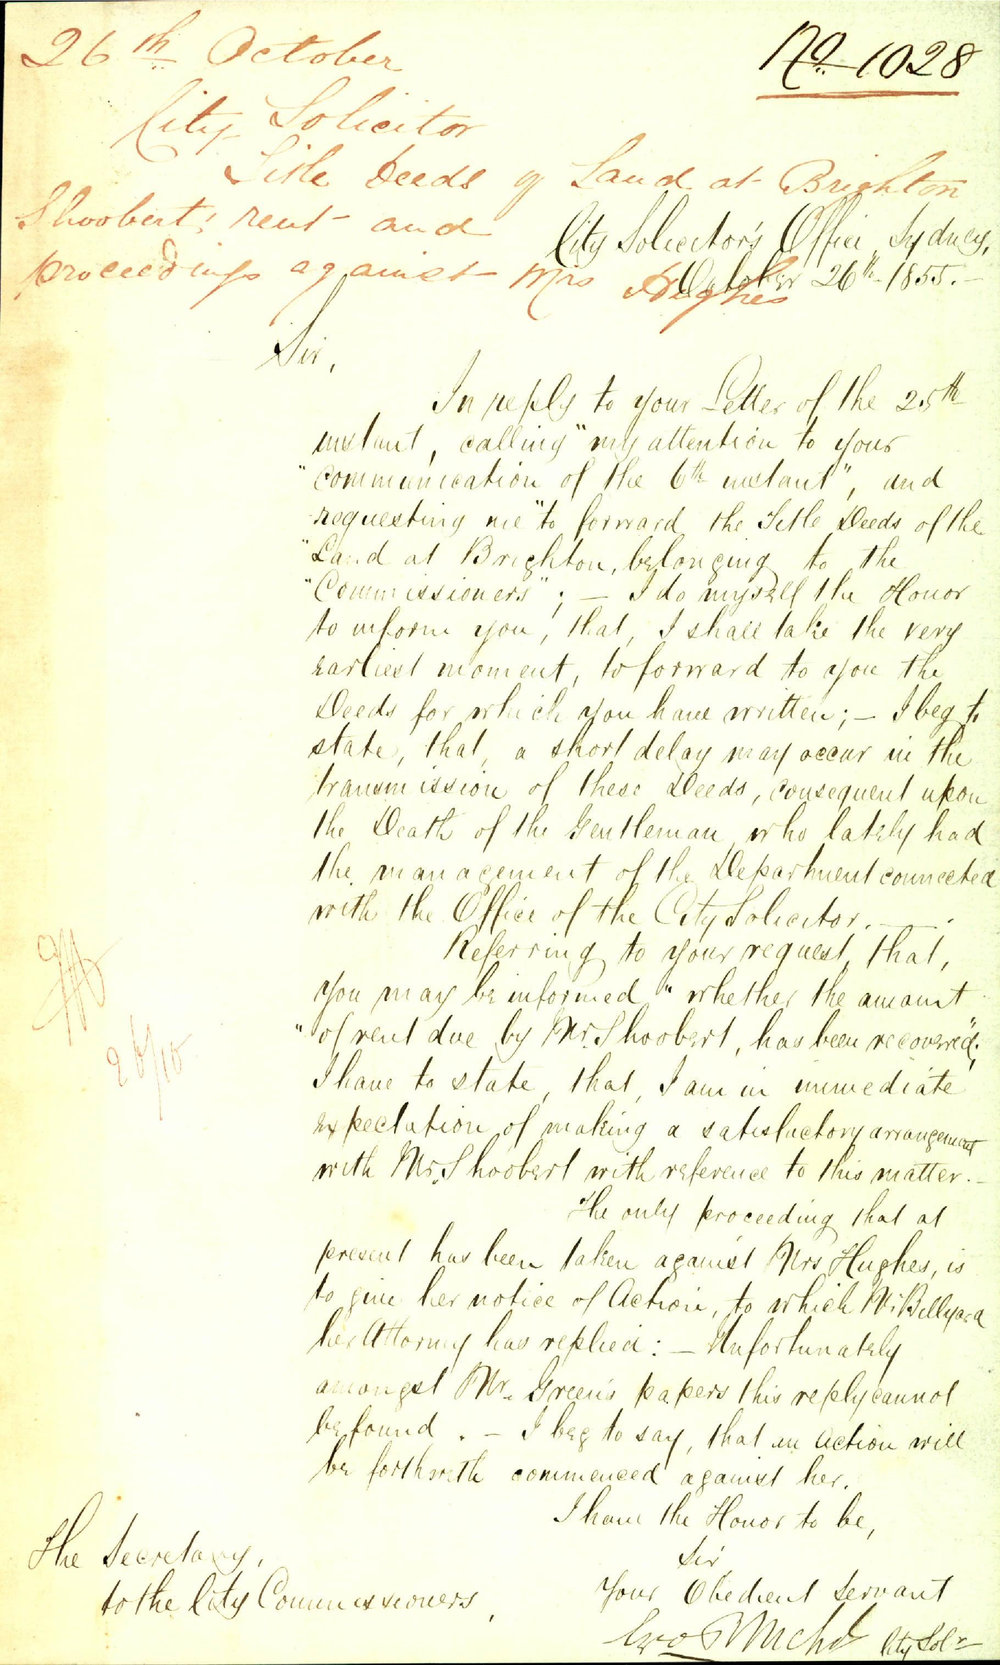 26th October
No. 1028
City Solicitor
Title Deeds of Land at Brighton
Shoobert's rent and
proceedings against Mrs Hughes
City Solicitor's Office, Sydney,
October 26th 1855.-
Sir,
In reply to your Letter of the 25th
instant, calling "my attention to your
"communication of the 6th instant", and
requesting me "to forward the Title Deeds of the
"Land at Brighton, belonging to the
"Commissioners"; - I do myself the Honor
to inform you, that, I shall take the very
earliest moment, to forward to you the
Deeds for which you have written; - I beg to
state, that, a short delay may occur in the
transmission of these Deeds, consequent upon
the Death of the Gentleman who lately had
the management of the Department connected
with the Office of the City Solicitor.
Referring to your request, that,
you may be informed "whether the amount
"of rent due by Mr. Shoobert, has been recovered",
I have to state, that, I am in immediate
expectation of making a satisfactory arrangement
with Mr. Shoobert with reference to this matter.-
The only proceeding that at
present has been taken against Mrs Hughes, is
to give her notice of Action, to which Mr Billyard
her Attorney has replied: - Unfortunately
amongst Mr. Green's papers this reply cannot
be found. - I beg to say, that an Action will
be forthwith commenced against her.
I have the Honor to be,
Sir
Your Obedient Servant
City Solr
The Secretary,
to the City Commissioners,
26/10